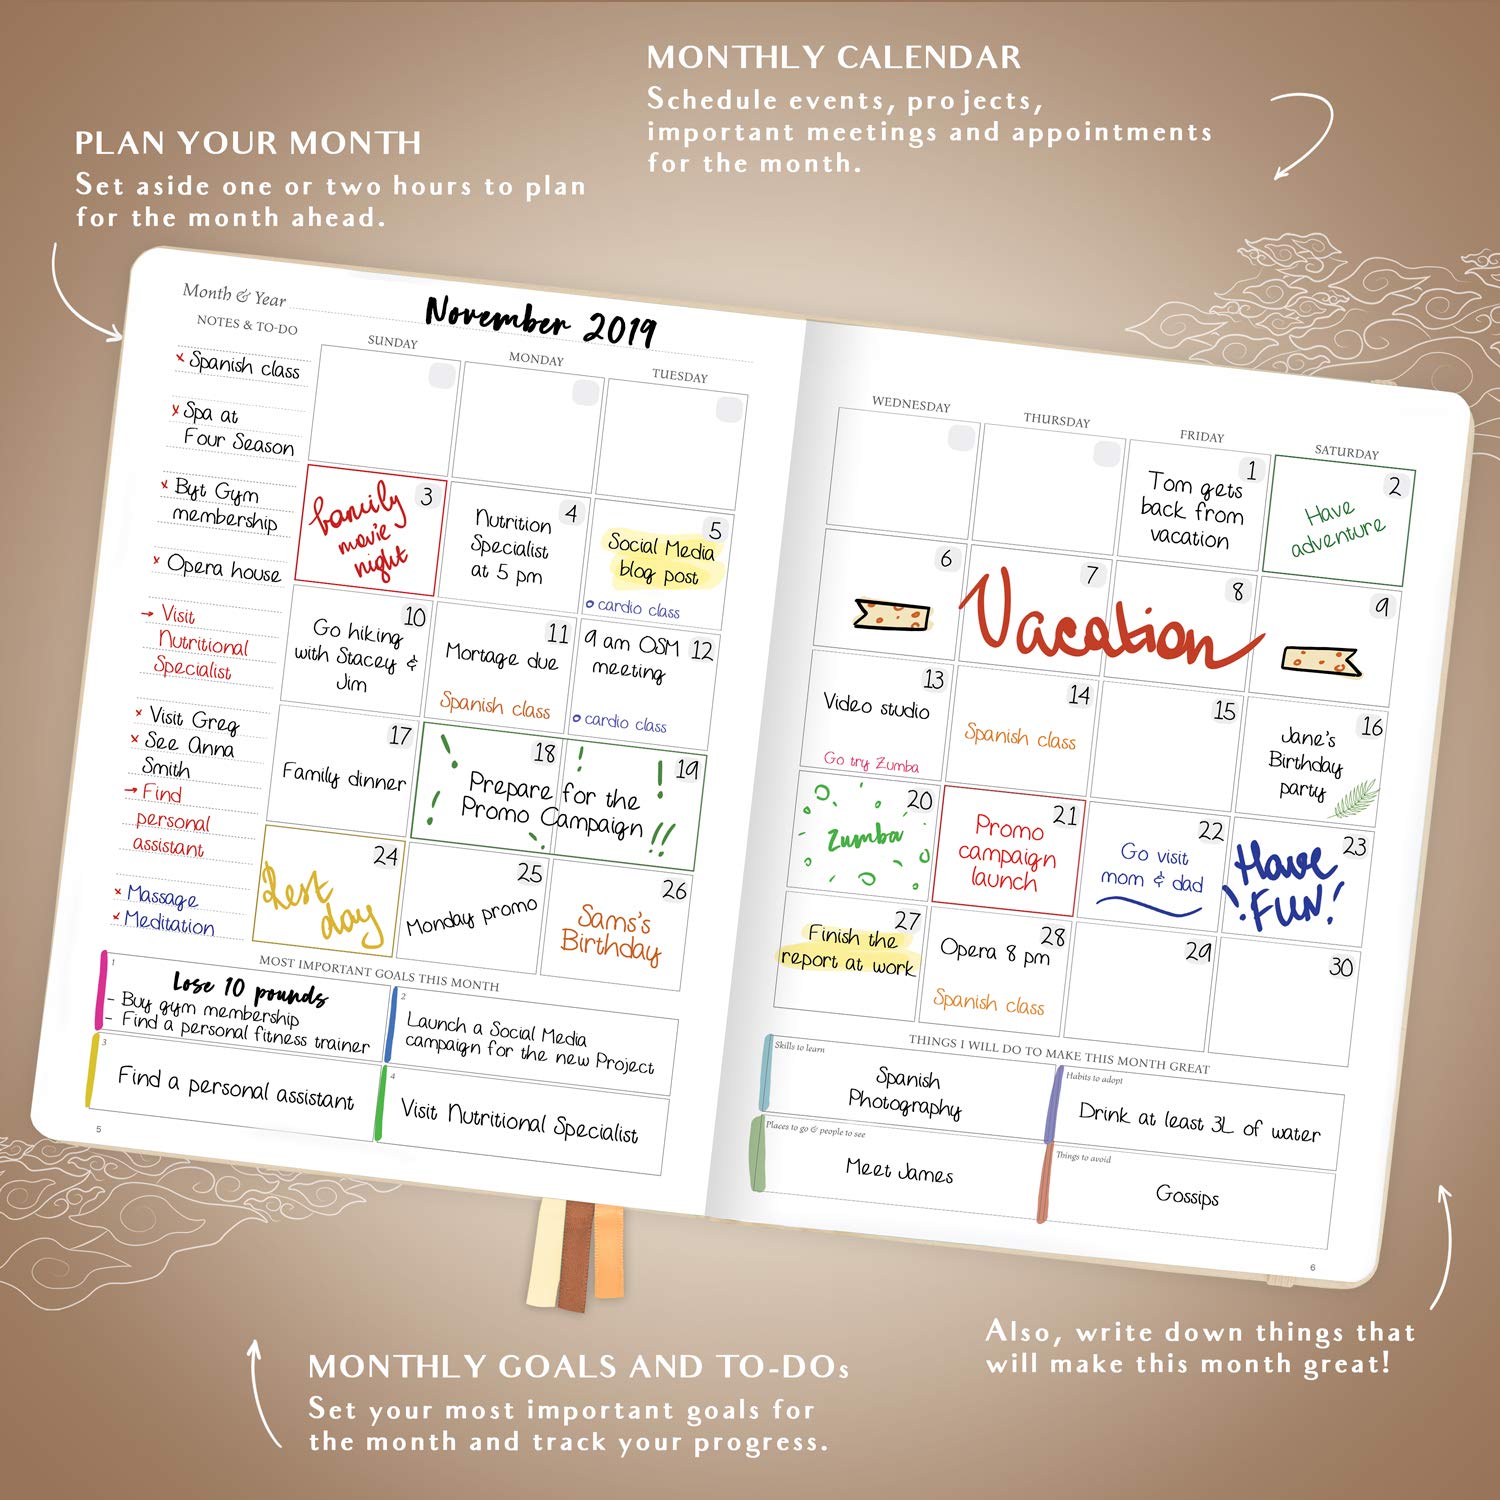 MONTHLY CALENDAR
Schedule events, projects,
important meetings and appointments
for the month.
PLAN YOUR MONTH
Set aside one or two hours to plan
for the month ahead.
Month & Year
November 2019
NOTES & TO-DO
× Spanish class
× Spa at
Four Season
× Byt Gym
membership
× Opera house
→ Visit
Nutritional
Specialist
× Visit Greg
× See Anna
Smith
→ Find
personal
assistant
× Massage
× Meditation
SUNDAY
MONDAY
TUESDAY
3
family
movie
night
4
Nutrition
Specialist
at 5 pm
5
Social Media
blog post
cardio class
10
Go hiking
with Stacey &
Jim
11
Mortage due
Spanish class
12
9 am OSM
meeting
cardio class
17
Family dinner
18
19
Prepare for the
Promo Campaign
24
Rest
day
25
Monday promo
26
Sams's
Birthday
MOST IMPORTANT GOALS THIS MONTH
1
Lose 10 pounds
- Buy gym membership
- Find a personal fitness trainer
2
Launch a Social Media
campaign for the new Project
3
Find a personal assistant
4
Visit Nutritional Specialist
5
WEDNESDAY
THURSDAY
FRIDAY
SATURDAY
1
Tom gets
back from
vacation
2
Have
adventure
6
7
8
9
Vacation
13
Video studio
Go try Zumba
14
Spanish class
15
16
Jane's
Birthday
party
20
Zumba
21
Promo
campaign
launch
22
Go visit
mom & dad
23
Have
FUN!
27
Finish the
report at work
28
Opera 8 pm
Spanish class
29
30
THINGS I WILL DO TO MAKE THIS MONTH GREAT
Skills to learn
Spanish
Photography
Habits to adopt
Drink at least 3L of water
Places to go & people to see
Meet James
Things to avoid
Gossips
6
Also, write down things that
will make this month great!
MONTHLY GOALS AND TO-DOs
Set your most important goals for
the month and track your progress.